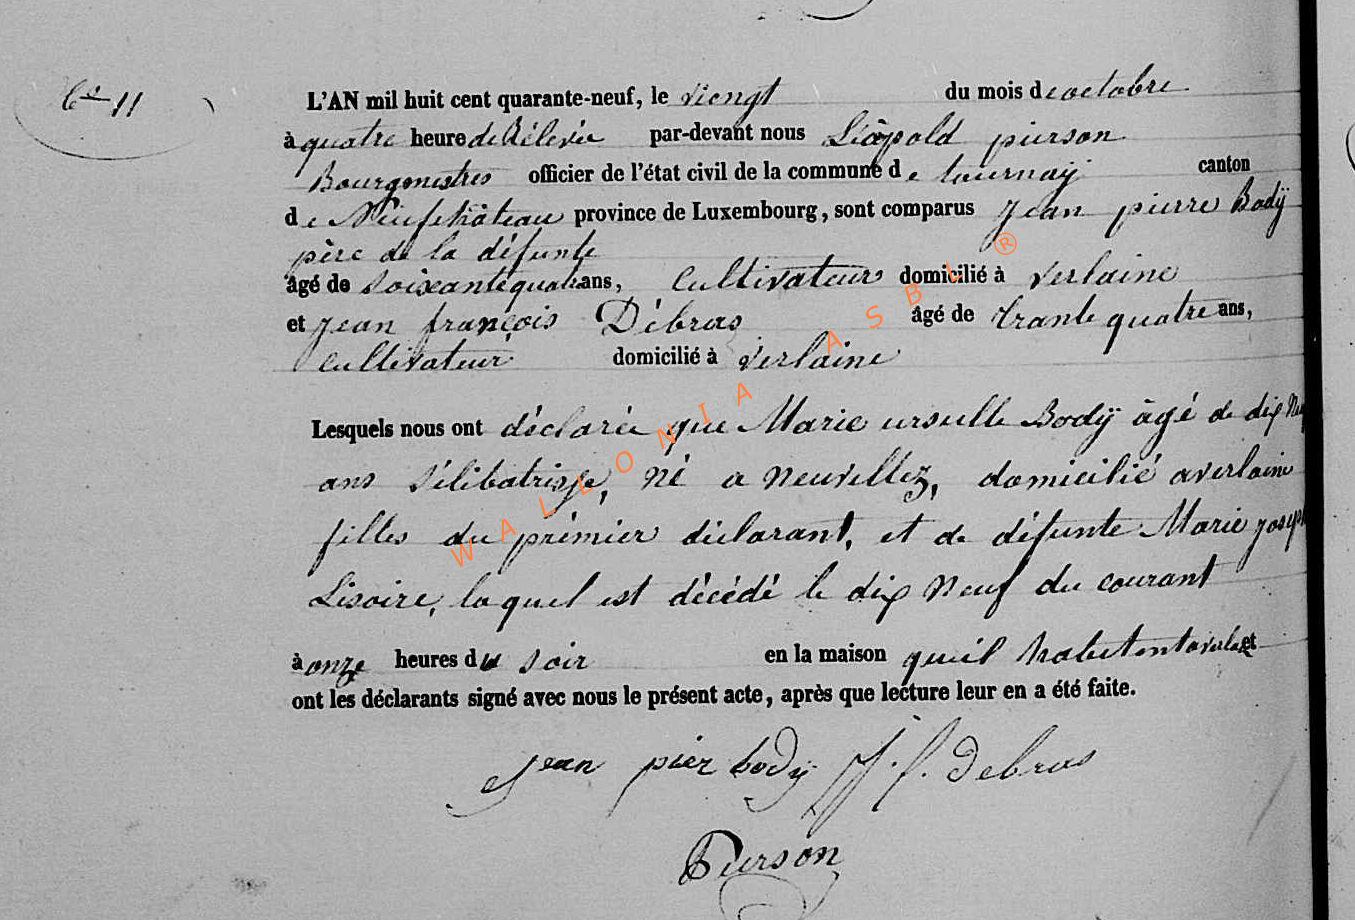 L'AN mil huit cent quarante-neuf, le viengt du mois de octobre
à quatre heure de Rélevée par-devant nous Léopold pierson
Bourgmestres officier de l'état civil de la commune de tournaÿ canton
de Neufchâteau province de Luxembourg, sont comparus jean pierre Bodÿ
père de la défunte
âgé de soixante quatre ans, Cultivateur domicilié à verlaine
et jean françois Débras âgé de trante quatre ans,
cultivateur domicilié à verlaine
Lesquels nous ont déclarée que Marie ursulle Bodÿ âgé de dix Neuf
ans, né a neuvillez, domicilié a verlaine
filles du prémier déclarant, et de défunte Marie joseph
Lisoire, laquel est décédé le dix Neuf du courant
à onze heures du soir en la maison quil et
ont les déclarants signé avec nous le présent acte, après que lecture leur en a été faite.
jean pier bodÿ J. f. Debras
Pierson
WALLONIA ASBL ®